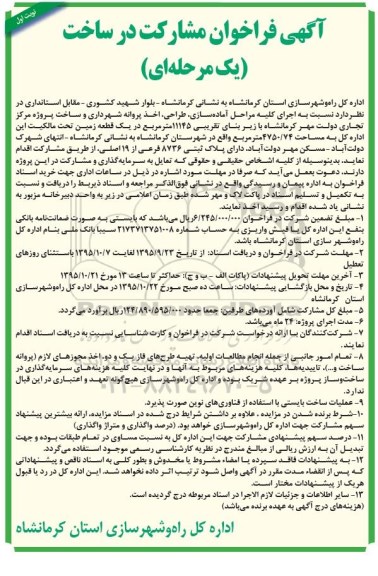 نوبت اول
آگهی فراخوان مشارکت در ساخت
(یک مرحله‌ای)
اداره کل راه‌وشهرسازی استان کرمانشاه به نشانی کرمانشاه -بلوار شهید کشوری -مقابل استانداری در
نظر دارد نسبت به اجرای کلیه مراحل آماده‌سازی، طراحی، اخذ پروانه شهرداری و ساخت پروژه مرکز
تجاری دولت مهر کرمانشاه با زیر بنای تقریبی ۱۱۱۴۵مترمربع در یک قطعه زمین تحت مالکیت این
اداره کل به مساحت ۴۷۵۰/۷۴مترمربع واقع در شهرستان کرمانشاه به نشانی کرمانشاه -انتهای شهرک
دولت‌آباد -مسکن مهر دولت‌آباد، دارای پلاک ثبتی ۸۷۳۶ فرعی از ۱۹اصلی، از طریق مشارکت اقدام
نماید. بدینوسیله از کلیه اشخاص حقیقی و حقوقی که تمایل به سرمایه‌گذاری و مشارکت در این پروژه
دارند، دعوت بعمل می‌آید که صرفا در مهلت مورد اشاره در ذیل در ساعات اداری جهت خرید اسناد
فراخوان به اداره پیمان و رسیدگی واقع در نشانی فوق‌الذکر مراجعه و اسناد ذیربط را دریافت و نسبت
به تکمیل و تسلیم اسناد در پاکت لاک و مهر شده طبق زمان اعلامی در زیر به واحد دبیرخانه مزبور به
نشانی یاد شده اقدام و رسید اخذ نمایند.
۱- مبلغ تضمین شرکت در فراخوان ۲۴۵/۰۰۰/۰۰۰ریال می‌باشد که بایستی به صورت ضمانت‌نامه بانکی
بنفع این اداره کل یا فیش واریزی به حساب شماره ۲۱۷۳۷۱۳۷۵۱۰۰۸ سیبا بانک ملی بنام اداره کل
راه‌وشهر سازی استان کرمانشاه باشد.
۲- مهلت شرکت در فراخوان و دریافت اسناد: از تاریخ ۱۳۹۵/۹/۲۳ لغایت ۱۳۹۵/۱۰/۷ باستثنای روزهای
تعطیل
۳- آخرین مهلت تحویل پیشنهادات (پاکات الف - ب و ج): حداکثر تا ساعت ۱۳ مورخ ۱۳۹۵/۱۰/۲۱
۴- تاریخ و محل بازگشایی پیشنهادات: ساعت ده صبح مورخ ۱۳۹۵/۱۰/۲۲ در محل اداره کل راه‌وشهرسازی
استان کرمانشاه
۵- مبلغ کل مشارکت شامل آورده‌های طرفین: جمعا حدود ۱۲۴/۸۹۰/۵۹۵/۰۰۰ریال برآورد می‌گردد.
۶- مدت اجرای پروژه: ۲۴ ماه می‌باشد.
۷- شرکت‌کنندگان با ارائه درخواست شرکت در فراخوان و کارت شناسایی نسبت به دریافت اسناد اقدام
نمایند.
۸- تمام امور جانبی از جمله انجام مطالعات اولیه، تهیه طرح‌های فاز یک و دو، اخذ مجوزهای لازم (پروانه
ساخت و...)، تاییدیه‌ها، کلیه هزینه‌های مربوط به آنها و در نهایت کلیه هزینه‌های سرمایه‌گذاری در
ساخت‌وساز پروژه بر عهده شریک بوده و اداره کل راه‌وشهرسازی هیچ‌گونه تعهد و اعتباری در این قبال
ندارد.
۹- عملیات ساخت بایستی با استفاده از فناوری‌های نوین صورت پذیرد.
۱۰-شرط برنده شدن در مزایده ، علاوه بر داشتن شرایط درج شده در اسناد مزایده، ارائه بیشترین پیشنهاد
سهم مشارکت جهت اداره کل راه‌وشهرسازی خواهد بود. (درصد واگذاری و متراژ واگذاری)
۱۱- درصد سهم پیشنهادی مشارکت جهت این اداره کل به نسبت مساوی در تمام طبقات بوده و جهت
تبدیل آن به ارزش ریالی از مبالغ مندرج در نظریه کارشناسی رسمی موجود استفاده می‌گردد.
۱۲- به پیشنهادات فاقد سپرده یا امضاء مشروط یا مخدوش و بطور کلی به اسناد ناقص و پیشنهاداتی
که پس از انقضاء مدت مقرر در آگهی واصل شود ترتیب اثر داده نخواهد شد. این اداره کل در رد یا قبول
هریک از پیشنهادات مختار است.
۱۳- سایر اطلاعات و جزئیات لازم الاجرا در اسناد مربوطه درج گردیده است.
(هزینه‌های درج آگهی به عهده برنده می‌باشد)
اداره کل راه‌وشهرسازی استان کرمانشاه